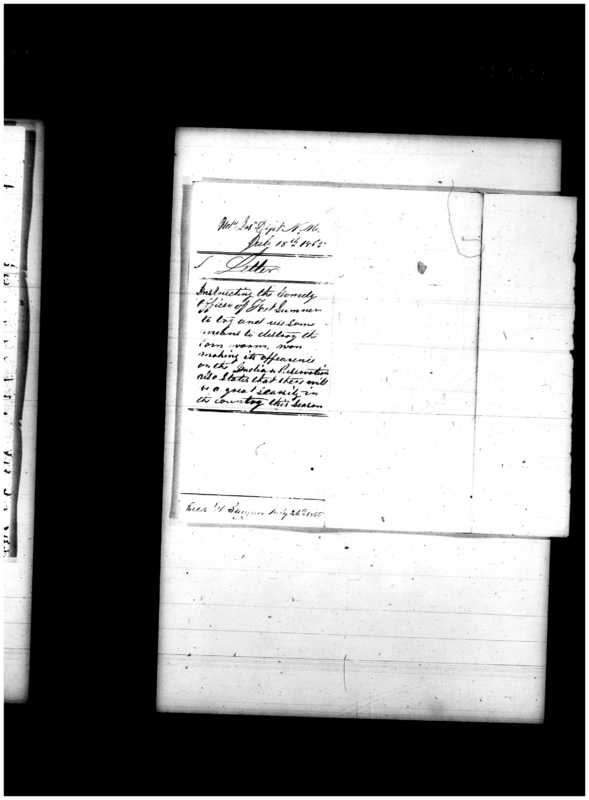 Dept. N. M.
July 18th 1865
Letter
Instructing the Comdg
Officer of Fort Sumner
to try and use some
means to destroy the
corn worm, now
making its appearance
on the Indian Reservation
also States that there will
be a great scarcity in
the country this Season
Sumner July 26th 1865